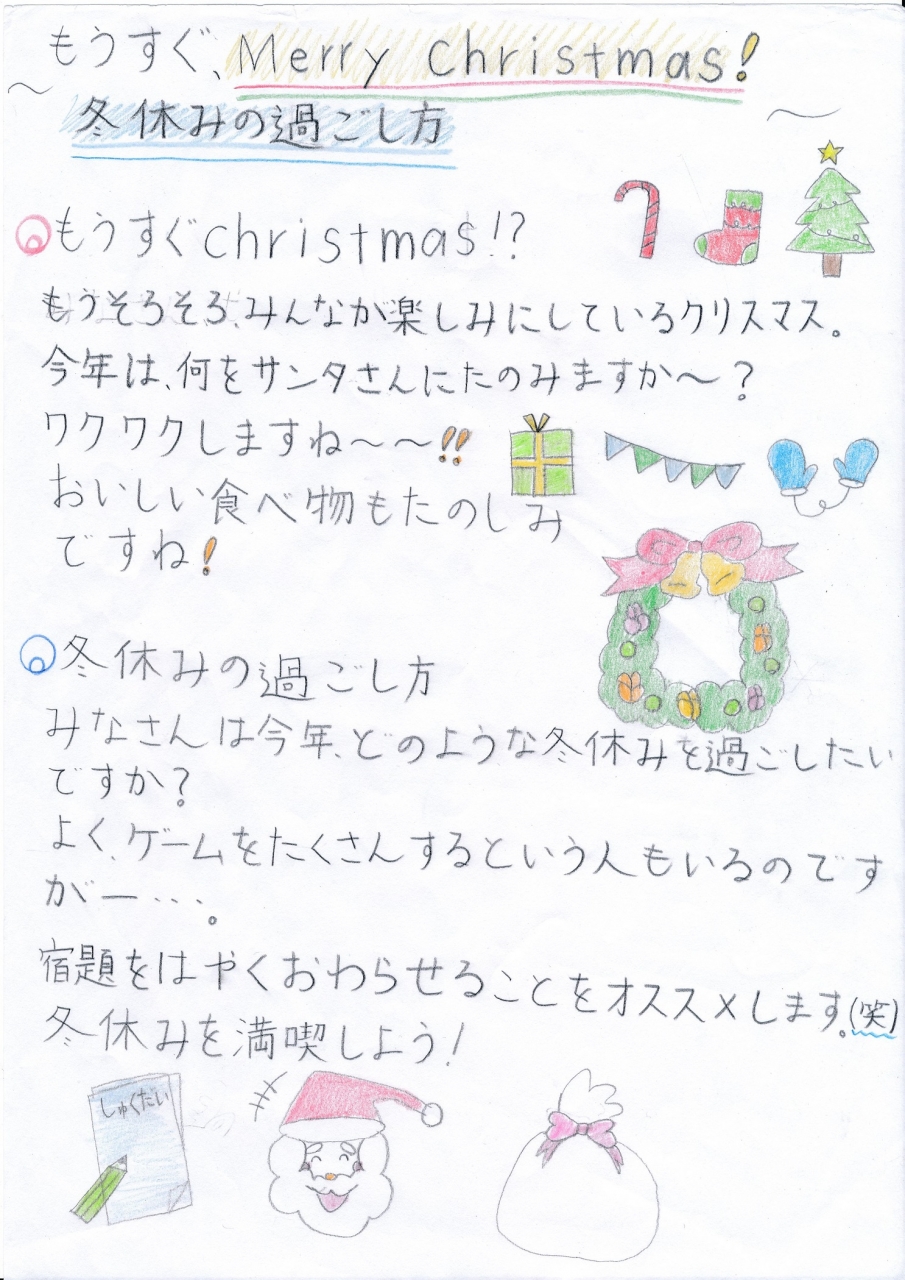 もうすぐ、Merry Christmas!
〜冬休みの過ごし方〜
もうすぐchristmas!?
もうそろそろ、みんなが楽しみにしているクリスマス。
今年は、何をサンタさんにたのみますか〜？
ワクワクしますね〜〜!!
おいしい食べ物もたのしみ
ですね!
冬休みの過ごし方
みなさんは今年、どのような冬休みを過ごしたい
ですか？
よく、ゲームをたくさんするという人もいるのです
がー…。
宿題をはやくおわらせることをオススメします。(笑)
冬休みを満喫しよう!
しゅくだい